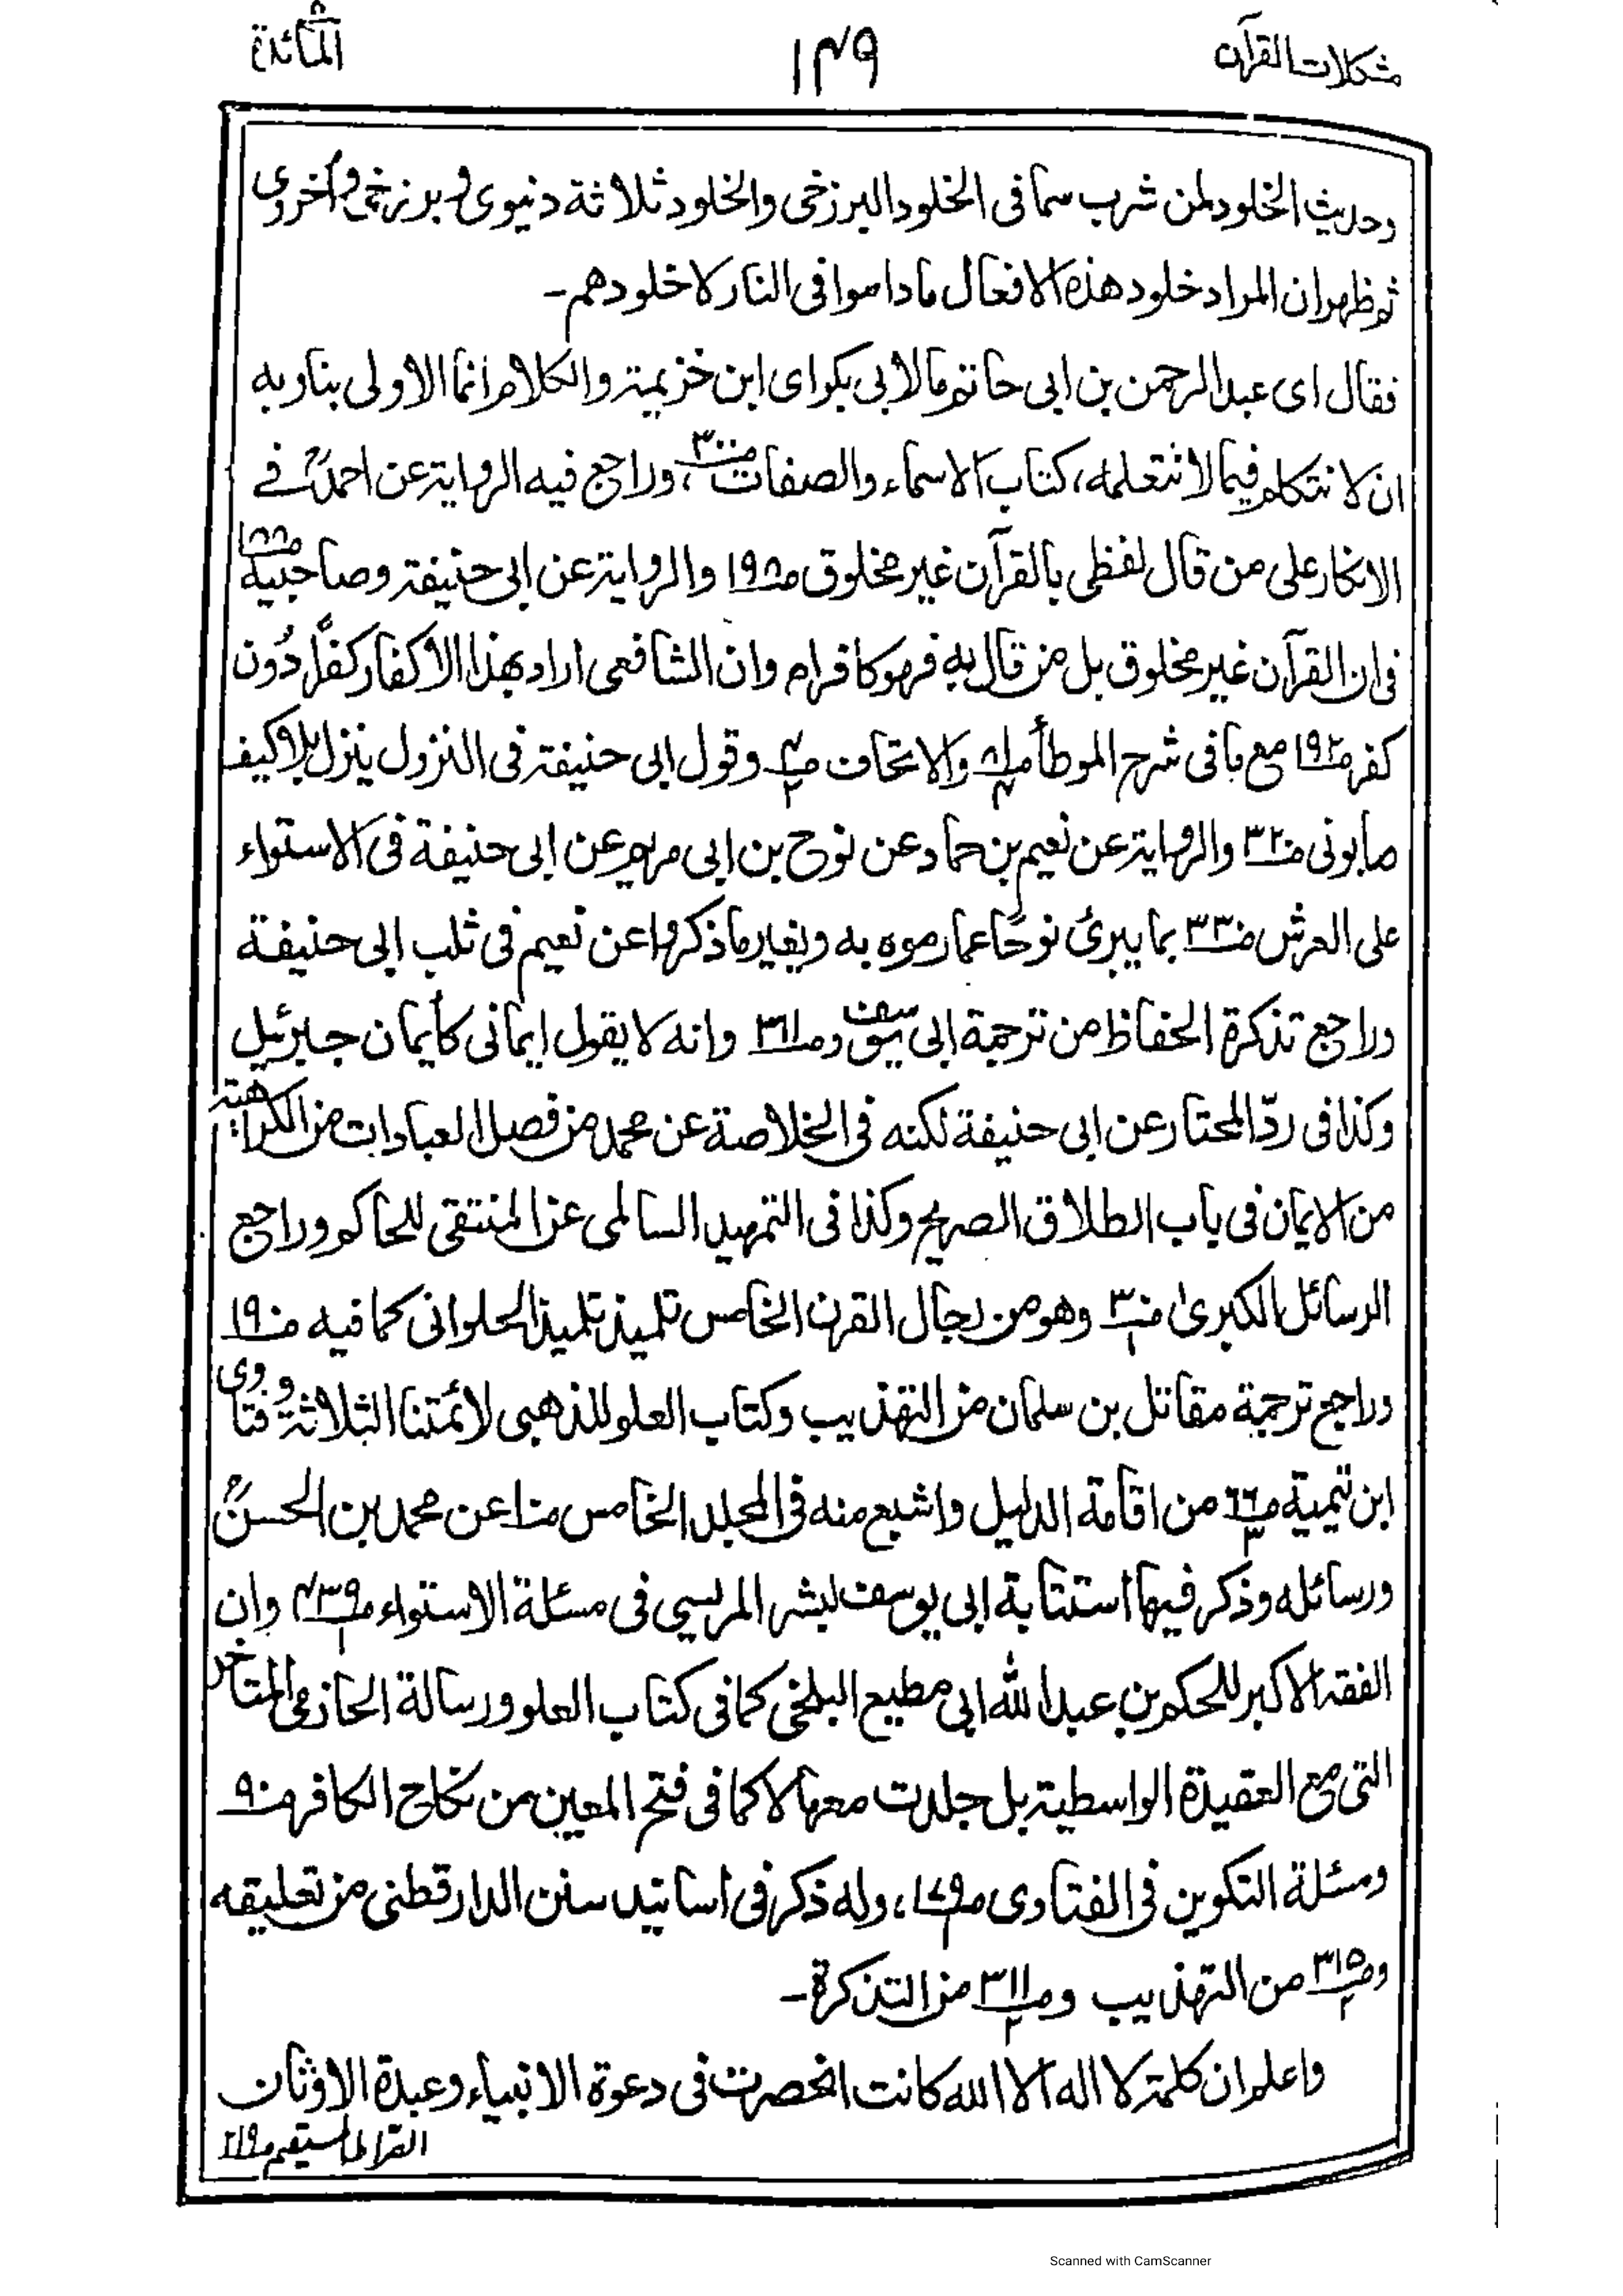 مشكلات القرآن ١٤٩ المآئدة
وحديث الخلود لمن شرب سما فى الخلود البرزخى والخلود ثلاثة دنيوى و برزخى وأخروى
ثم ظهر ان المراد خلود هذه الافعال ما داموا فى النار لا خلودهم ـ
فقال اى عبد الرحمن بن ابى حاتم ما لابى بكر اى ابن خزيمة والكلام انما الاولى بنا وبه
ان لا نتكلم فيما لا نتعلمه، كتاب الاسماء والصفات صـ٢٠٠، وراجع فيه الرواية عن احمدؒ فى
الانكار على من قال لفظى بالقرآن غير مخلوق صـ١٩٨ والرواية عن ابى حنيفة وصاحبيه صـ١٨٨
فى ان القرآن غير مخلوق بل من قال به فهو كافر ام وان الشافعى اراد بهذا الاكفار كفراً دُون
كفر صـ١٩٢ مع ما فى شرح الموطأ والاتحاف صـ وقول ابى حنيفة فى النزول ينزل بلا كيف
صابونى صـ٣٢ والرواية عن نعيم بن حماد عن نوح بن ابى مريم عن ابى حنيفة فى الاستواء
على العرش صـ٣٣ بما يبرئ نوحًا عما رموه به ويغاير ما ذكروا عن نعيم فى ثلب ابى حنيفة
وراجع تذكرة الحفاظ من ترجمة ابى يوسف وصـ٣٦١ وانه لا يقول ايمانى كأيمان جبرئيل
وكذا فى ردّ المحتار عن ابى حنيفة لكنه فى الخلاصة عن محمد من فصل العبادات من الكراهية
من الايمان فى باب الطلاق الصريح وكذا فى التمهيد السالمى عن المنتقى للحاكم وراجع
الرسائل الكبرىٰ صـ وهو من رجال القرن الخامس تلميذ تلميذ الحلوانى كما فيه صـ١٩
وراجع ترجمة مقاتل بن سلمان من التهذيب وكتاب العلو للذهبى لائمتنا الثلاثة و فتاوى
ابن تيمية صـ٦٦/٣ من اقامة الدليل واشبع منه فى المجلد الخامس منا عن محمد بن الحسنؒ
ورسائله وذكر فيها استتابة ابى يوسف لبشر المريسي فى مسئلة الاستواء صـ٤٣٩/١ وان
الفقه الاكبر للحكم بن عبد الله ابى مطيع البلخى كما فى كتاب العلو ورسالة الحازمى المتأخر
التى مع العقيدة الواسطية بل جلدت معها لا كما فى فتح المعين من نكاح الكافر صـ٩٠
ومسئلة التكوين فى الفتاوى صـ١٧٩/١، وله ذكر فى اسانيد سنن الدارقطنى من تعليقه
وصـ٣١٥/٢ من التهذيب وصـ٣١١/٢ من التذكرة ـ
واعلم ان كلمة لا اله الا الله كانت انحصرت فى دعوة الانبياء وعبدة الاوثان
الصراط المستقيم صـ٢١٩
Scanned with CamScanner